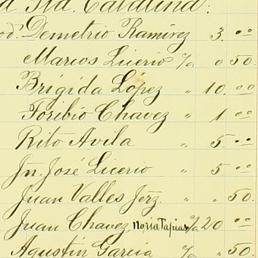 Sta. Catalina.
od. Demetrio Ramirez 3. 00
Marcos Licerio 0 50.
Brigida López " 10. 00
Toribio Chavez " 1 00
Rito Avila " 5. 00
Jn. José Licerio " 5 00
Juan Valles Jorz. " " 50.
Juan Chavez Noria Tapias 20 00
Agustin Garcia " 50.